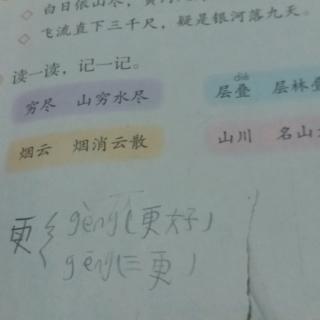 白日依山尽，黄河
飞流直下三千尺，疑是银河落九天。
读一读，记一记。
dié
穷尽 山穷水尽 层叠 层林
烟云 烟消云散 山川 名山
更 gèng(更好)
gēng(三更)